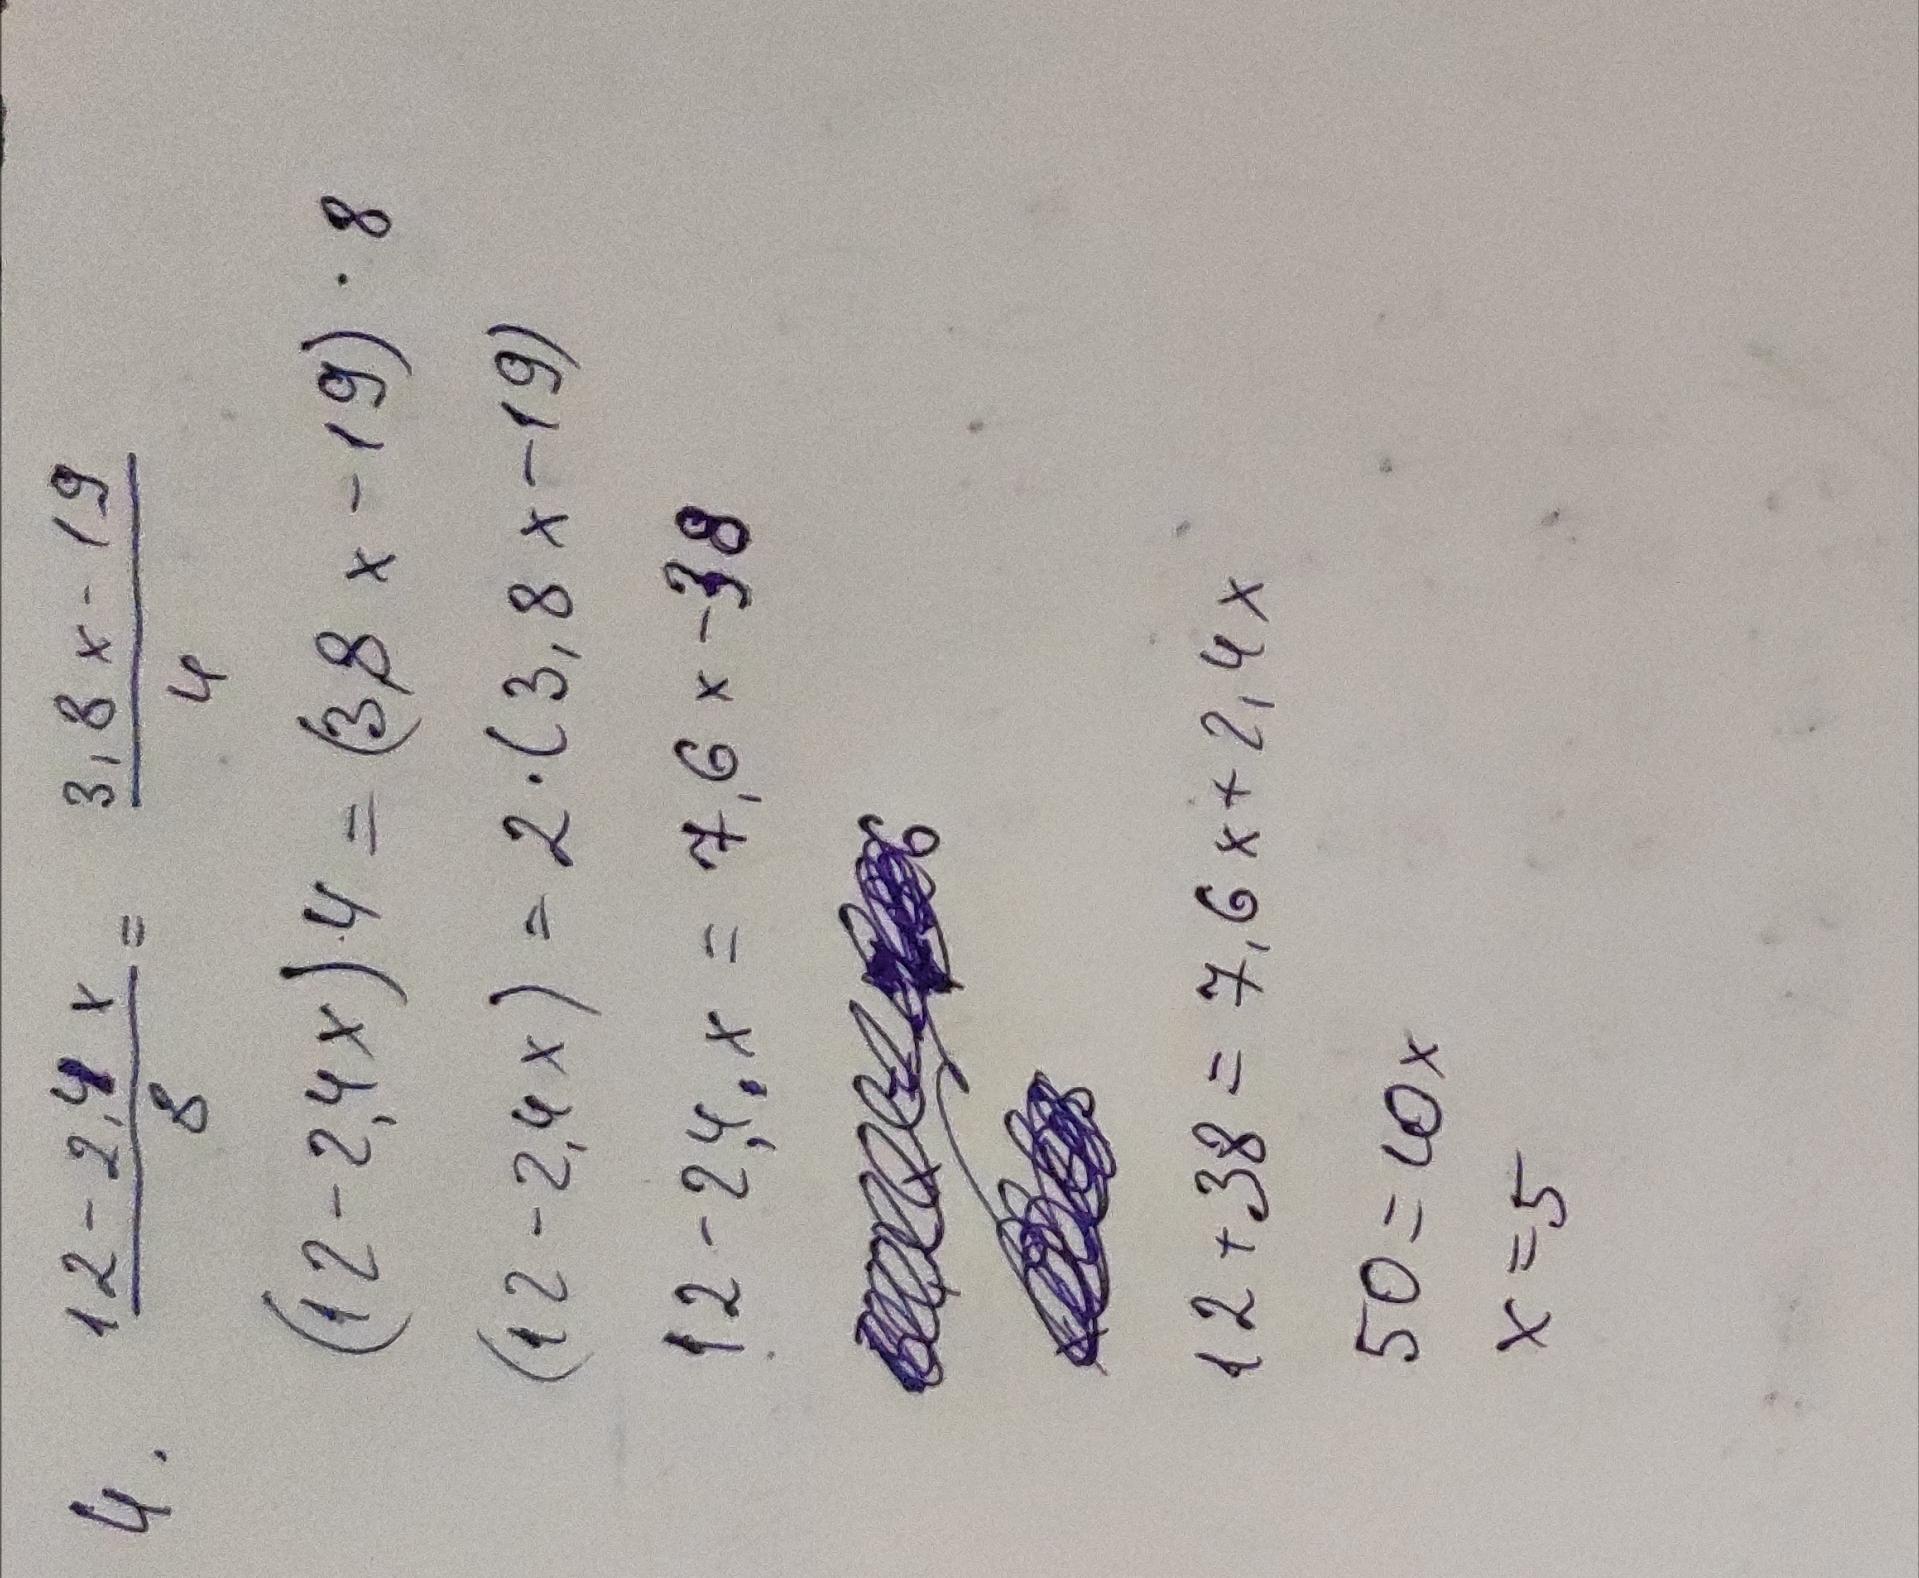 4. 12-2,4x = 3,8x-19
8 4
(12-2,4x)·4=(3,8x-19)·8
(12-2,4x)=2·(3,8x-19)
12-2,4·x=7,6x-38
12+38=7,6x+2,4x
50=10x
x=5